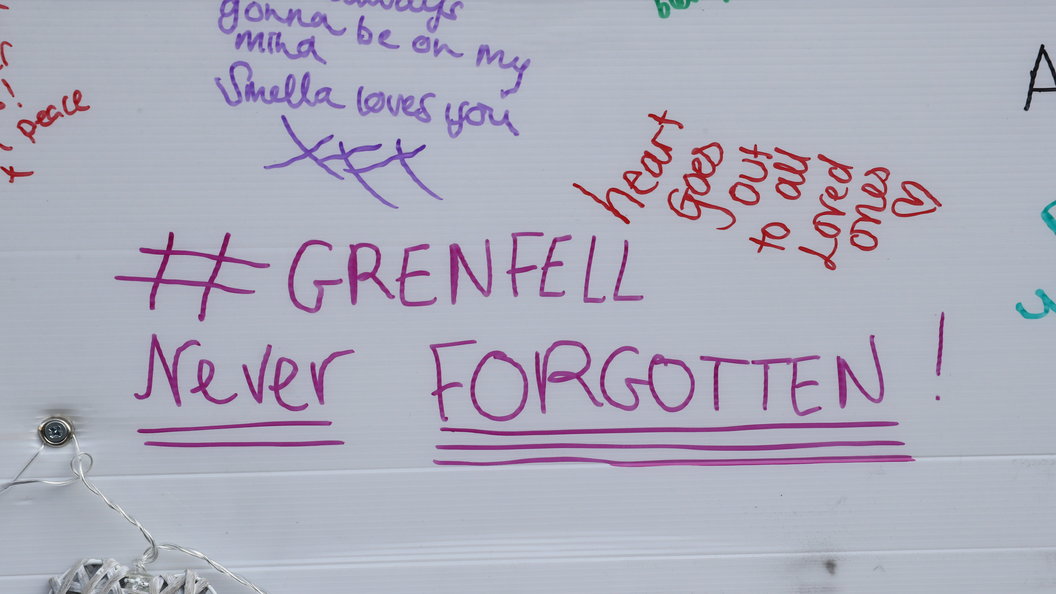 always
gonna be on my
mind
Smella loves you
xxx
peace
heart
goes
out
to all
Loved
ones ♡
#GRENFELL
Never FORGOTTEN!
A